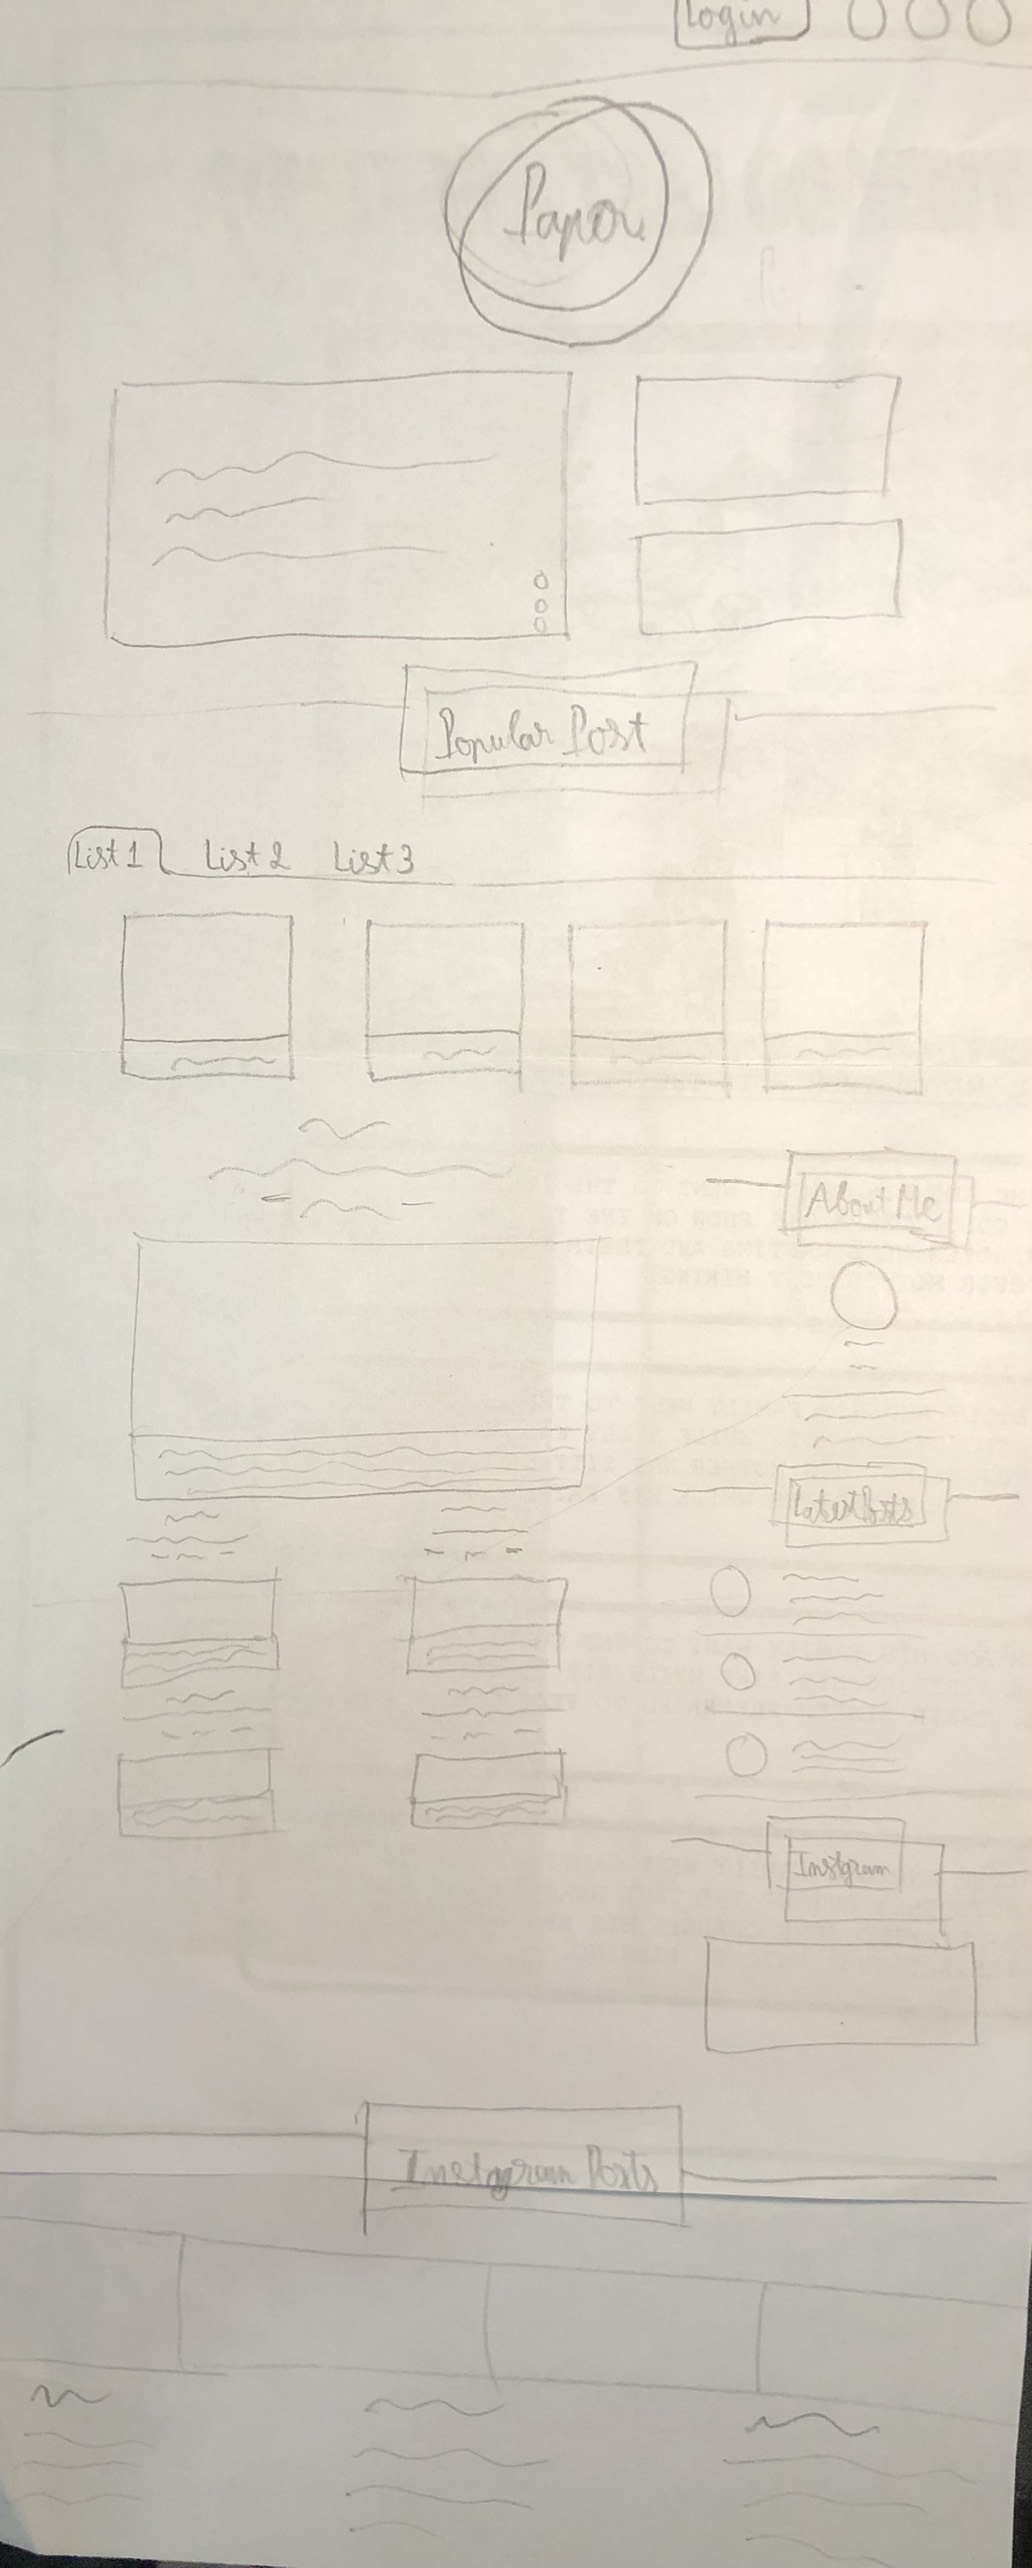 Login
Papou
Popular Post
List 1 List 2 List 3
About Me
Latest Posts
Instgram
Instagram Posts